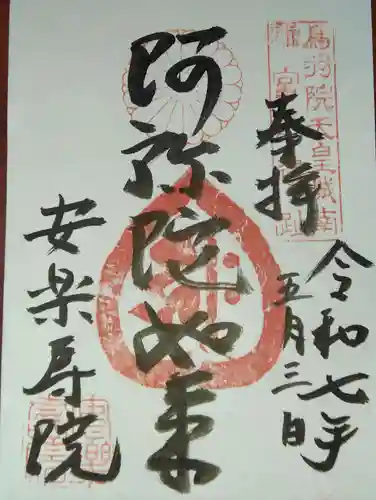 奉拝
令和七年
五月三日
阿弥陀如来
安楽寿院
鳥羽院天皇城南
離宮